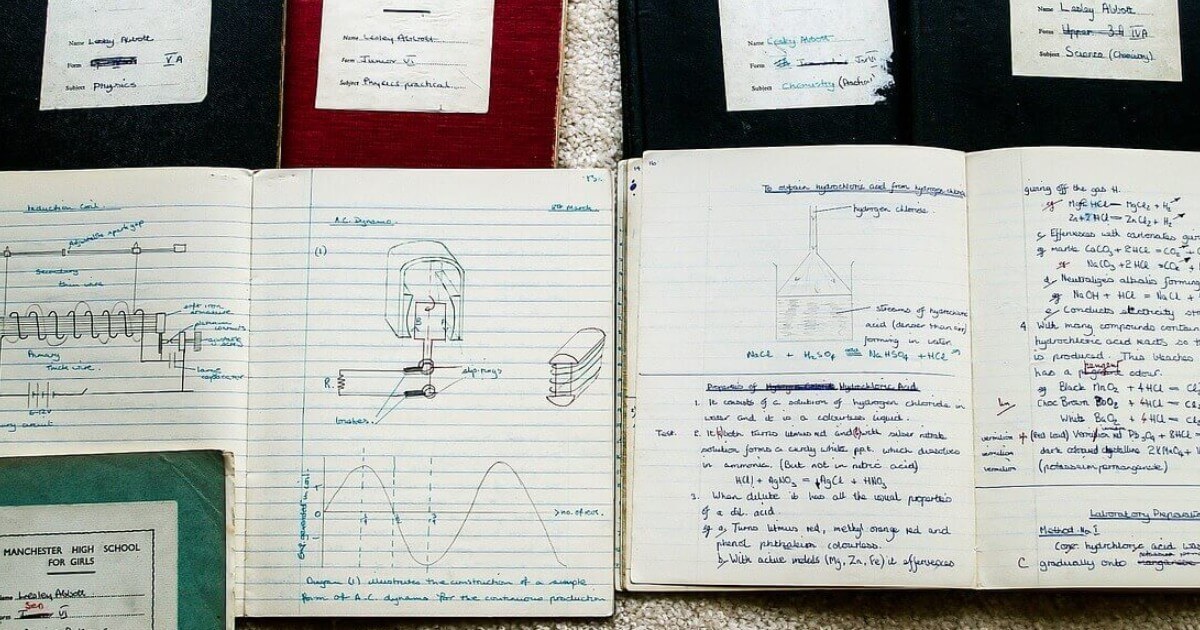 Name Lesley Abbott
Form VA
Subject Physics
Name Lesley Abbott
Form Junior VI
Subject Physics practical
Name Lesley Abbott
Form Jr VI
Subject Chemistry (Practical)
Name Lesley Abbott
Form Upper 3A IVA
Subject Science (Chemistry)
Induction Coil
Adjustable spark gap
Secondary
thin wire
soft iron
armature
platinum
contacts
Primary
Thick wire.
large
capacitor
6-12v
circuit
MANCHESTER HIGH SCHOOL
FOR GIRLS
Lesley Abbott
Sen
VI
8th March
A.C. Dynamo.
(1)
R.
slip rings
brushes.
E.m.f. generated in coil.
0
> no. of rev.
Diagram (1) illustrates the construction of a simple
form of A.C. dynamo for the continuous production
To obtain hydrochloric acid from hydrogen
hydrogen chloride.
streams of hydrochloric
acid (denser than air)
forming in water
NaCl + H₂SO₄ = NaHSO₄ + HCl
Properties of Hydrochloric Acid
1. It consists of a solution of hydrogen chloride in
water and it is a colourless liquid.
Test. 2. It both turns litmus red and with silver nitrate
solution forms a curdy white ppt. which dissolves
in ammonia. (But not in nitric acid)
HCl + AgNO₃ = AgCl + HNO₃
3. When dilute it has all the usual properties
of a dil. acid.
eg a, Turns litmus red, methyl orange red and
phenol phthalein colourless.
b, With active metals (Mg, Zn, Fe) it effervesces
giving off the gas H.
MgCl₂ + H₂
Zn + 2HCl = ZnCl₂ + H₂
c, Effervesces with carbonates
eg marble CaCO₃ + 2HCl = CO₂ +
+ 2HCl = CO₂ +
d, Neutralizes alkalis forming
eg NaOH + HCl = NaCl +
e, Conducts electricity
4 With many compounds
hydrochloric acid reacts so
is produced. This bleaches
has a pungent odour.
eg Black MnO₂ + 4HCl =
Choc Brown + 4HCl =
White BaO₂ + 4HCl =
vermilion (Red Lead) Pb₃O₄ + 8HCl =
vermilion dark 2KMnO₄ +
vermilion (potassium permanganate)
Laboratory Preparation
Method No I
Conc. hydrochloric acid was
gradually onto